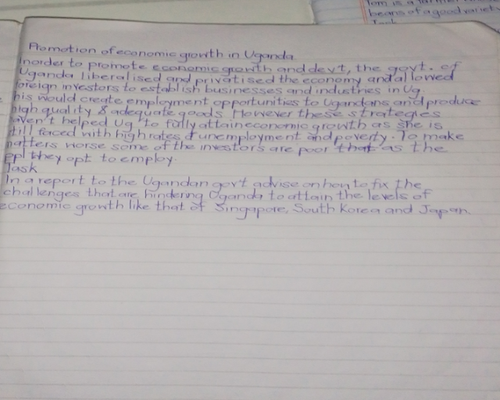 Tom is a farmer
beans of a good variety
Task
Promotion of economic growth in Uganda
Inorder to promote economic growth and dev't, the govt. of
Uganda liberalised and privatised the economy and allowed
foreign investors to establish businesses and industries in Ug.
his would create employment opportunities to Ugandans and produce
high quality & adequate goods. However these strategies
aven't helped Ug to fully attain economic growth as she is
till faced with high rates of unemployment and poverty. To make
matters worse some of the investors are poor that as the
ppl they opt to employ.
Task
In a report to the Ugandan gov't advise on how to fix the
challenges that are hindering Uganda to attain the levels of
economic growth like that of Singapore, South Korea and Japan.